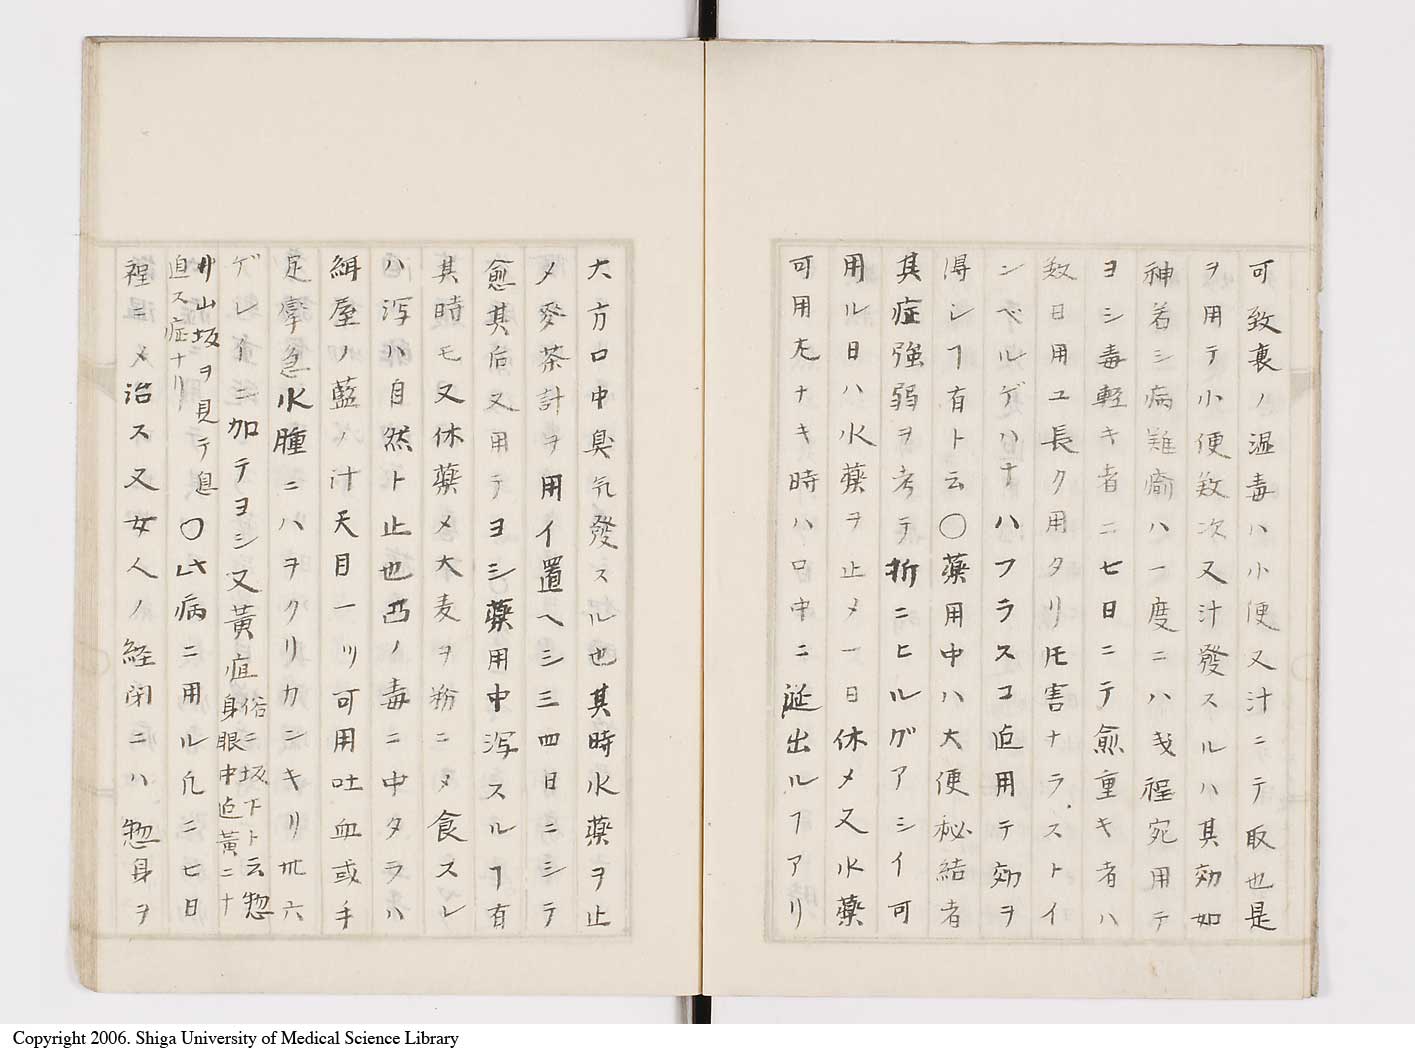 可致裏ノ湿毒ハ小便又汁ニテ取也是
ヲ用テ小便数次又汁發スルハ其効如
神着シ病難癒ハ一度ニハ考程宛用テ
ヨシ毒軽キ者ニ七日ニテ愈重キ者ハ
数日用ユ長ク用タリ𪜈害ナラズトイ
ンベルゲハナハフランスコ迠用テ効ヲ
得シヿ有ト云〇薬用中ハ大便秘結者
其症強弱ヲ考テ折ニヒルグアシイ可
用ル日ハ水薬ヲ止メ一日休メ又水薬
可用尤ナキ時ハ口中ニ涎出ルヿアリ
大方口中臭気發スル也其時水薬ヲ止
メ麥茶計ヲ用イ置ヘシ三四日ニシテ
愈其后又用テヨシ薬用中瀉スルヿ有
其時モ又休薬メ大麦ヲ粉ニメ食スレ
ハ瀉ハ自然ト止也茄ノ毒ニ中タラハ
紺屋ノ藍ノ汁天目一ツ可用吐血或手
足攣急水腫ニハヲクリカンキリ卅六
ゲレインニ加テヨシ又黄疸俗ニ坂下ト云惣身眼中迠黄ニナ
リ山坂ヲ見テ息迫ス症ナリ〇此病ニ用ル凡ニ七日
程ニメ治ス又女人ノ経閉ニハ惣身ヲ
Copyright 2006. Shiga University of Medical Science Library